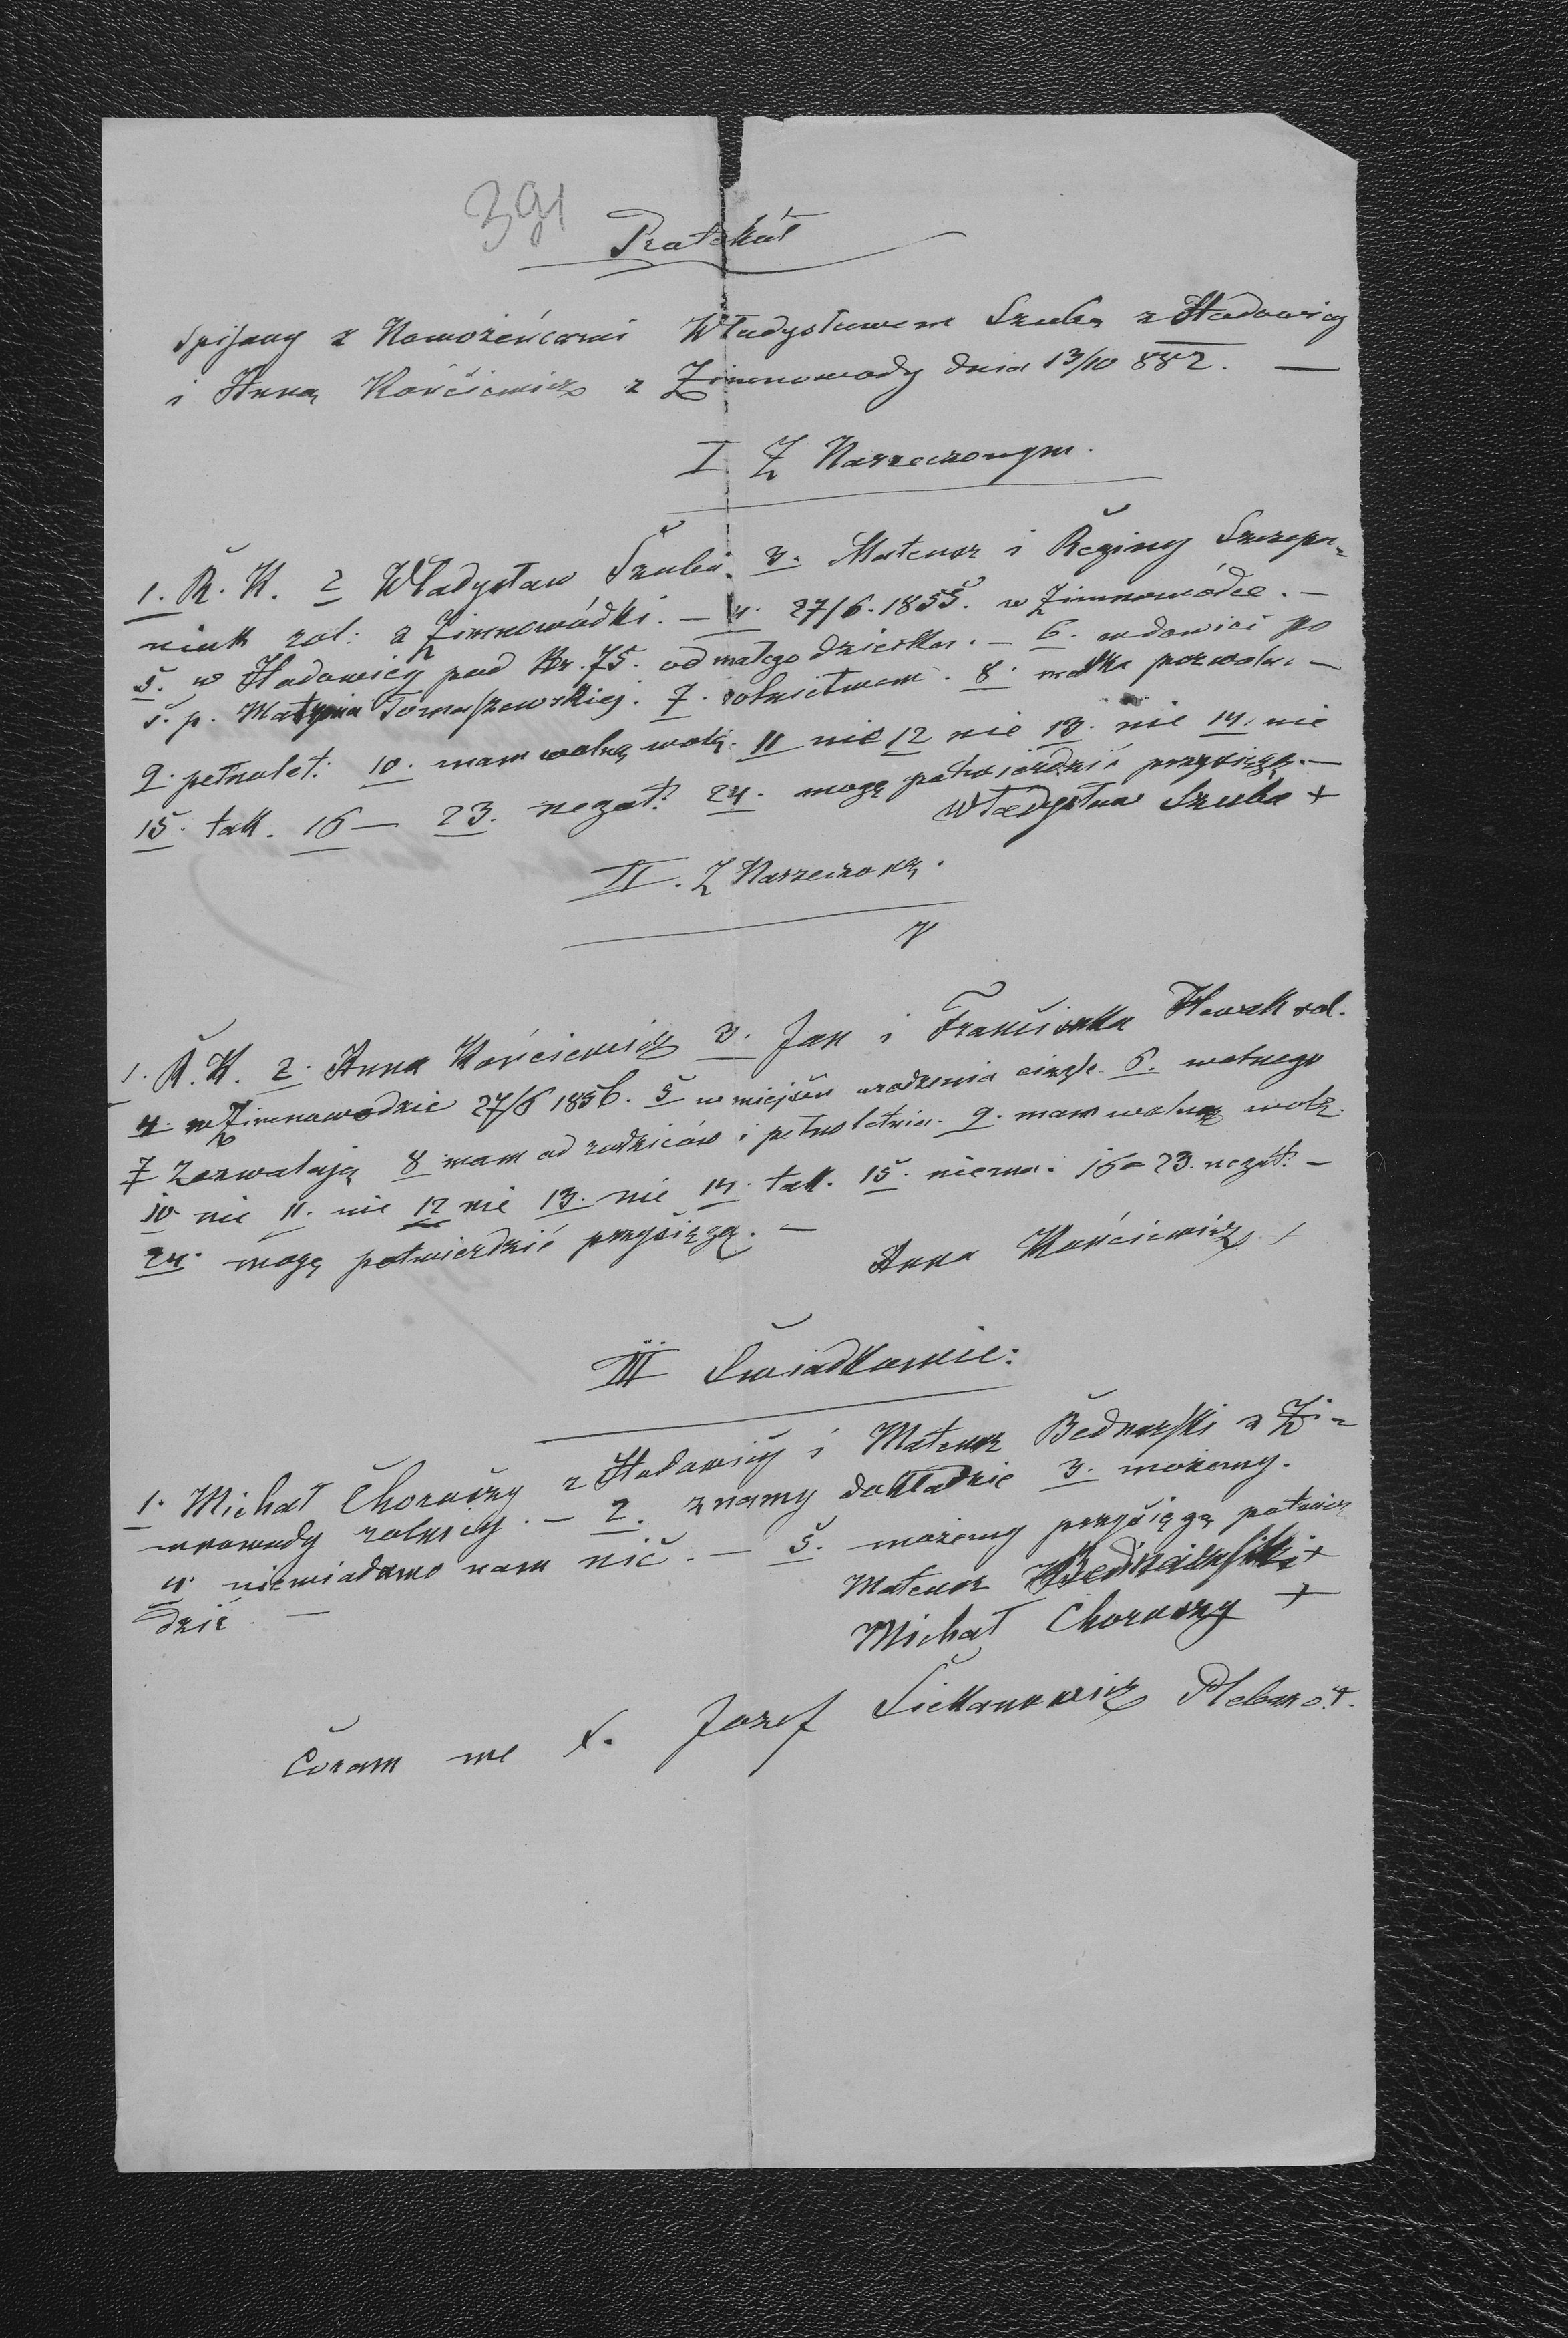 391
Protokół
Spisany z Nowożeńcami Władysławem Szuba z Hodowicy
i Anną Kościewicz z Zimnowody dnia 13/10 882. —
I. Z Narzeczonym.
1. R. K. 2 Władysław Szuba. 3. Mateusz i Reginy Szczepa-
niuk rol: z Zimnowódki. — 4. 27/6. 1855. w Zimnowódce. —
5. w Hodowicy pod Nr. 75. od małego dziecka. — 6. wdowiec po
ś. p. Tomaszewskiej. 7. rolnictwem. 8. matka pozwala —
9. pełnolet: 10. mam wolną wolą. 11 nie 12 nie 13. nie 14. nie
15. tak. 16 — 23. negat: 24. mogę potwierdzić przysięgą. —
Władysław Szuba +
II. Z Narzeczoną.
1. R. K. 2. Anna Kościewicz 3. Jan i Franciszka rol.
4. w Zimnowodzie 27/6 1856. 5 w miejscu urodzenia ciągle 6. wolnego
7 Zezwalają 8 mam od rodziców i pełnoletnia. 9. mam wolną wolą.
10 nie 11. nie 12 nie 13. nie 14. tak. 15. niema. 16 - 23. negat: —
24. mogę potwierdzić przysięgą. —
Anna Kościewicz +
III Świadkowie:
1. Michał Chorąży z Hodowicy i Mateusz Bednarski z Zi-
mnowody rolnicy. — 2. znamy dokładnie 3. możemy.
4. niewiadomo nam nic. — 5. możemy przysięgą potwier
dzić. —
Mateusz Bednarski +
Michał Chorąży +
Coram me X. Jozef Siekanowicz Pleban o. ł.